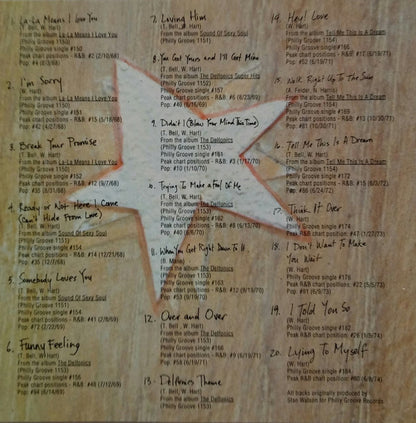 La-La Means I Love You
(T. Bell, W. Hart)
From the album La-La Means I Love You
(Philly Groove 1150)
Philly Groove single #150
Peak chart positions - R&B: #2 (2/10/68)
Pop: #4
2. I'm Sorry
(W. Hart)
From the album La-La Means I Love You
(Philly Groove 1150)
Philly Groove single #151
Peak chart positions - R&B: #15 (5/18/68)
Pop: #42 (4/27/68)
3. Break Your Promise
(T. Bell, W. Hart)
From the album La-La Means I Love You
(Philly Groove 1150)
Philly Groove single #152
Peak chart positions - R&B: #12 (9/7/68)
Pop: #35 (8/31/68)
4. Ready or Not Here I Come
(Can't Hide From Love)
(T. Bell, W. Hart)
From the album Sound Of Sexy Soul
(Philly Groove 1151)
Philly Groove single #154
Peak chart positions - R&B: #14 (12/21/68)
Pop: #35 (12/7/68)
5. Somebody Loves You
(T. Bell, W. Hart)
From the album Sound Of Sexy Soul
(Philly Groove 1151)
Philly Groove single #154
Peak chart positions - R&B: #41 (2/8/69)
Pop: #72 (2/22/69)
6. Funny Feeling
(T. Bell, W. Hart)
From the album The Delfonics
(Philly Groove 1153)
Philly Groove single #156
Peak chart positions - R&B: #48 (7/12/69)
Pop: #94 (6/14/69)
7. Loving Him
(T. Bell, W. Hart)
From the album Sound Of Sexy Soul
(Philly Groove 1151)
8. You Got Yours and I'll Get Mine
(T. Bell, W. Hart)
From the album The Delfonics Super Hits
(Philly Groove 1152)
Philly Groove single #157
Peak chart positions - R&B: #6 (8/23/69)
Pop: #40
9. Didn't I (Blow Your Mind This Time)
(T. Bell, W. Hart)
From the album The Delfonics
(Philly Groove 1153)
Philly Groove single #161
Peak chart positions - R&B: #3 (1/17/70)
Pop: #10 (1/10/70)
10. Trying To Make a Fool of Me
(T. Bell, W. Hart)
From the album The Delfonics
(Philly Groove 1153)
Philly Groove single #162
Peak chart positions - R&B: #8 (6/13/70)
Pop: #40
11. When You Get Right Down To It
(B. Mann)
From the album The Delfonics
(Philly Groove 1153)
Philly Groove single #163
Peak chart positions - R&B: #12 (9/19/70)
Pop: #53 (9/19/70)
12. Over and Over
(T. Bell, W. Hart)
From the album The Delfonics
(Philly Groove 1153)
Philly Groove single #166
Peak chart positions - R&B: #9 (6/19/71)
Pop: #58 (6/19/71)
13. Delfonics Theme
(T. Bell, W. Hart)
From the album The Delfonics
(Philly Groove 1153)
14. Hey! Love
(W. Hart)
From the album Tell Me This Is A Dream
(Philly Groove 1154)
Philly Groove single #166
Peak chart positions - R&B: #17 (6/19/71)
Pop: #52 (6/19/71)
15. Walk Right Up To The Sun
(A. Felder, N. Harris)
From the album Tell Me This Is A Dream
(Philly Groove 1154)
Philly Groove single #169
Peak chart positions - R&B: #13 (10/30/71)
Pop: #81 (10/30/71)
16. Tell Me This Is A Dream
(W. Hart)
From the album Tell Me This Is A Dream
(Philly Groove 1154)
Philly Groove single #172
Peak chart positions - R&B: #15
Pop: #86 (6/24/72)
17. Think It Over
(W. Hart)
Philly Groove single #174
Peak R&B chart position: #47 (1/27/73)
18. I Don't Want To Make
You Wait
(W. Hart)
Philly Groove single #176
Peak chart positions - R&B: #22 (5/5/73)
Pop: #91 (6/9/73)
19. I Told You So
(W. Hart)
Philly Groove single #182
Peak R&B chart position: #26
20. Lying To Myself
(W. Hart)
Philly Groove single #184
Peak R&B chart position: #60 (6/8/74)
All tracks originally produced by
Stan Watson for Philly Groove Records